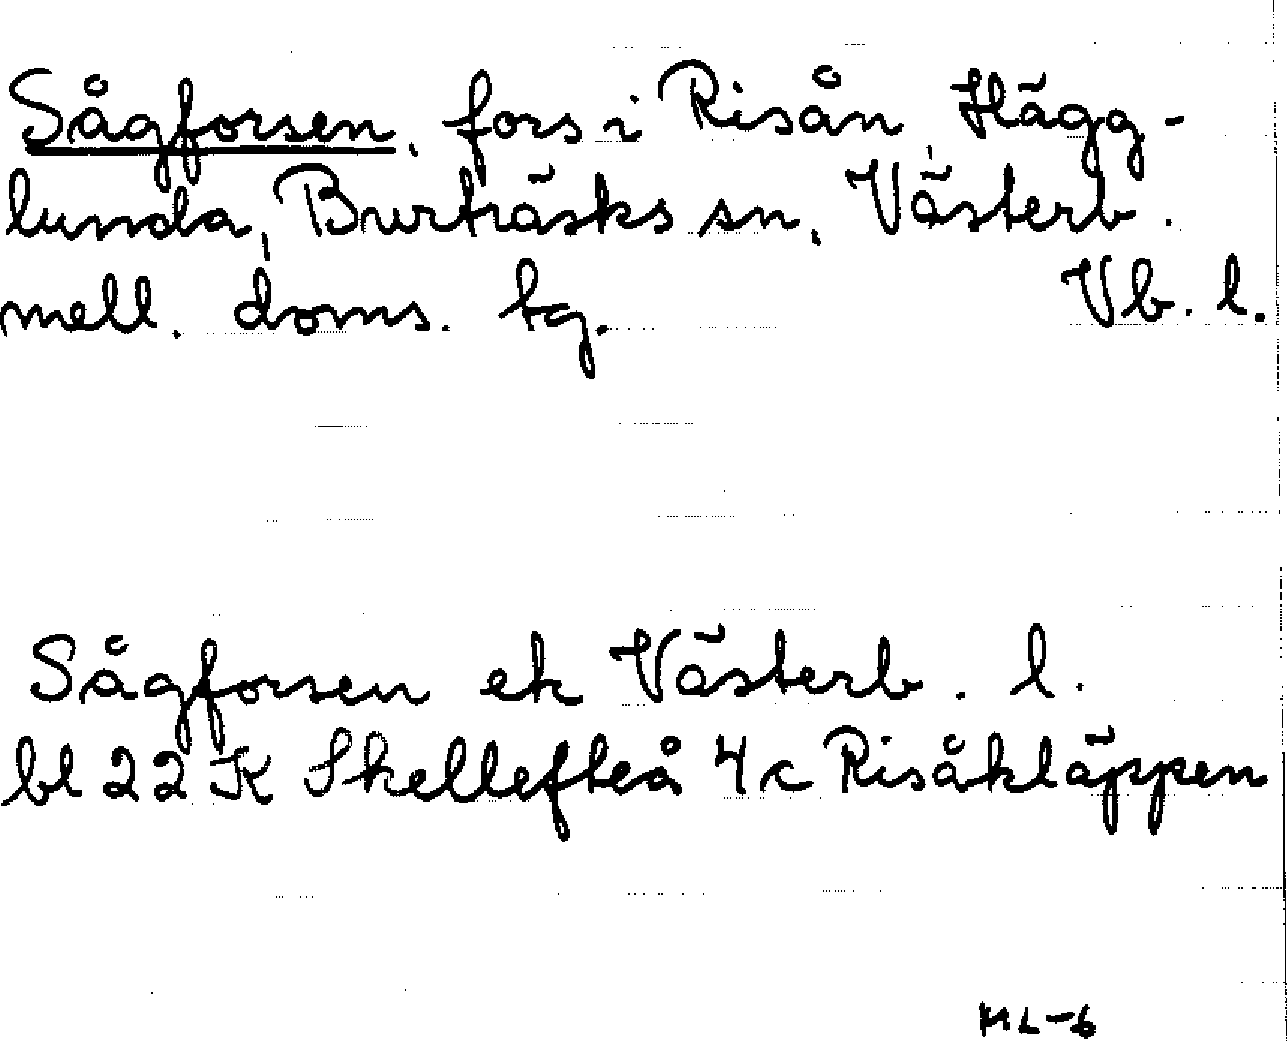 Sågforsen, fors i Risån, Hägg-
lunda, Burträsks sn, Västerb.
mell. doms. tg. Vb. l.
Sågforsen ek Västerb. l.
bl 22 K Skellefteå 4 c Risåkläppen
ML-6